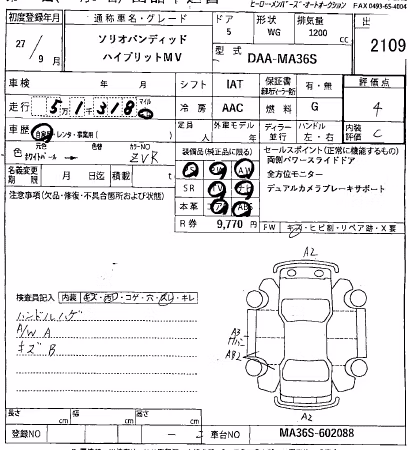 ヒーロー・メンバーズ・オートオークション FAX 0493-65-4004
初度登録年月 通称車名・グレード ドア 形状 排気量 出
27/9月 ソリオバンディッド ハイブリットMV 5 WG 1200 cc 2109
型式 DAA-MA36S
車検 年 月 シフト IAT 保証書 有・無 評価点
走行 5万1千318 冷房 AAC 燃料 G 4
車歴 自家用・レンタ・事業用 定員 人 外装モデル 年 ディーラー車 ハンドル 右・左 内装評価 C
色 元色 ホワイトパール → 色替 カラーNO ZVR
装備品(純正品に限る) セールスポイント(正常に機能するもの)
PS PW AW 両側パワースライドドア
名義変更期限 月 日迄 積載 t
SR TV ナビ 全方位モニター
本革 エアB ABS デュアルカメラブレーキサポート
注意事項(欠品・修復・不具合箇所および状態)
R券 9,770 円
FW キズ・ヒビ割・リペア跡・X要
A2
検査員記入 内装 キズ・汚レ・コゲ・穴・スレ・キレ
ハンドルハゲ
A/W A
キズ B
A3
AB2
A2
長さ cm 幅 cm 高さ cm
登録NO 車台NO MA36S-602088